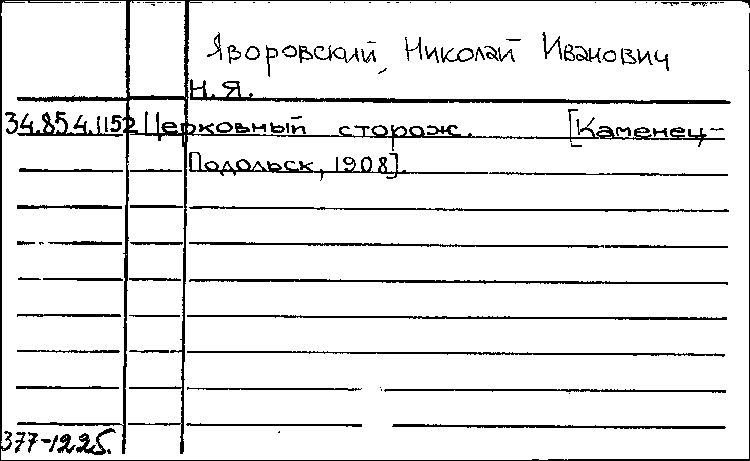 Яворовский, Николай Иванович
Н.Я.
34.85.4.1152 Церковный сторож. [Каменец-
Подольск, 1908].
377-1225.